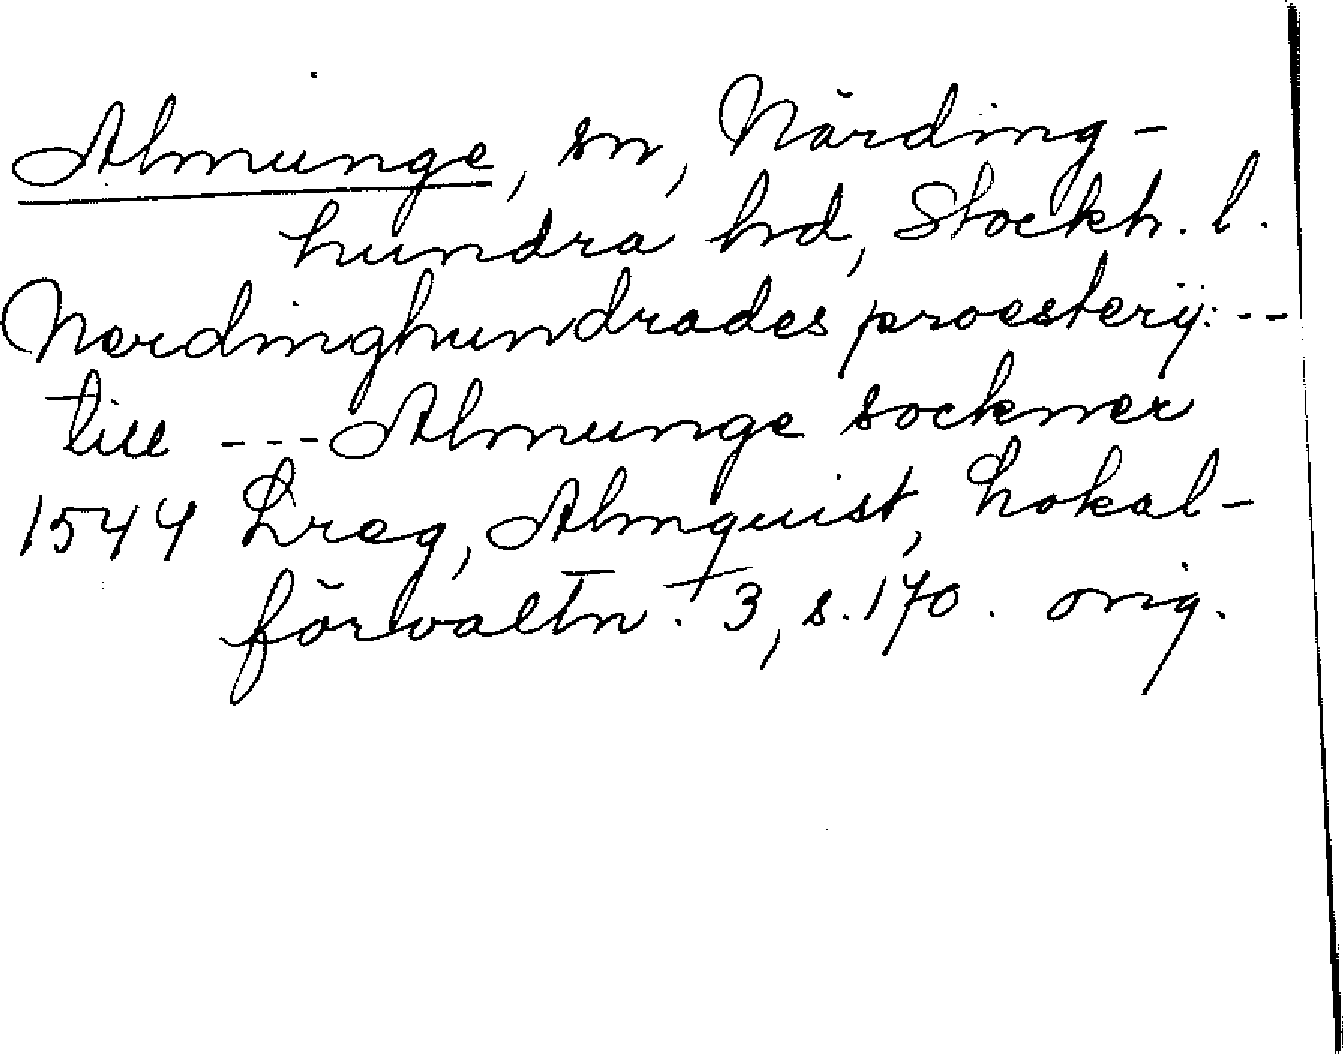 Almunge, sn, Närding-
hundra hd, Stockh. l.
Nerdinghundrades proesterij: --
till --- Almunge sockner
1544 Lreg, Almquist, Lokal-
förvaltn. 3, s. 170. orig.